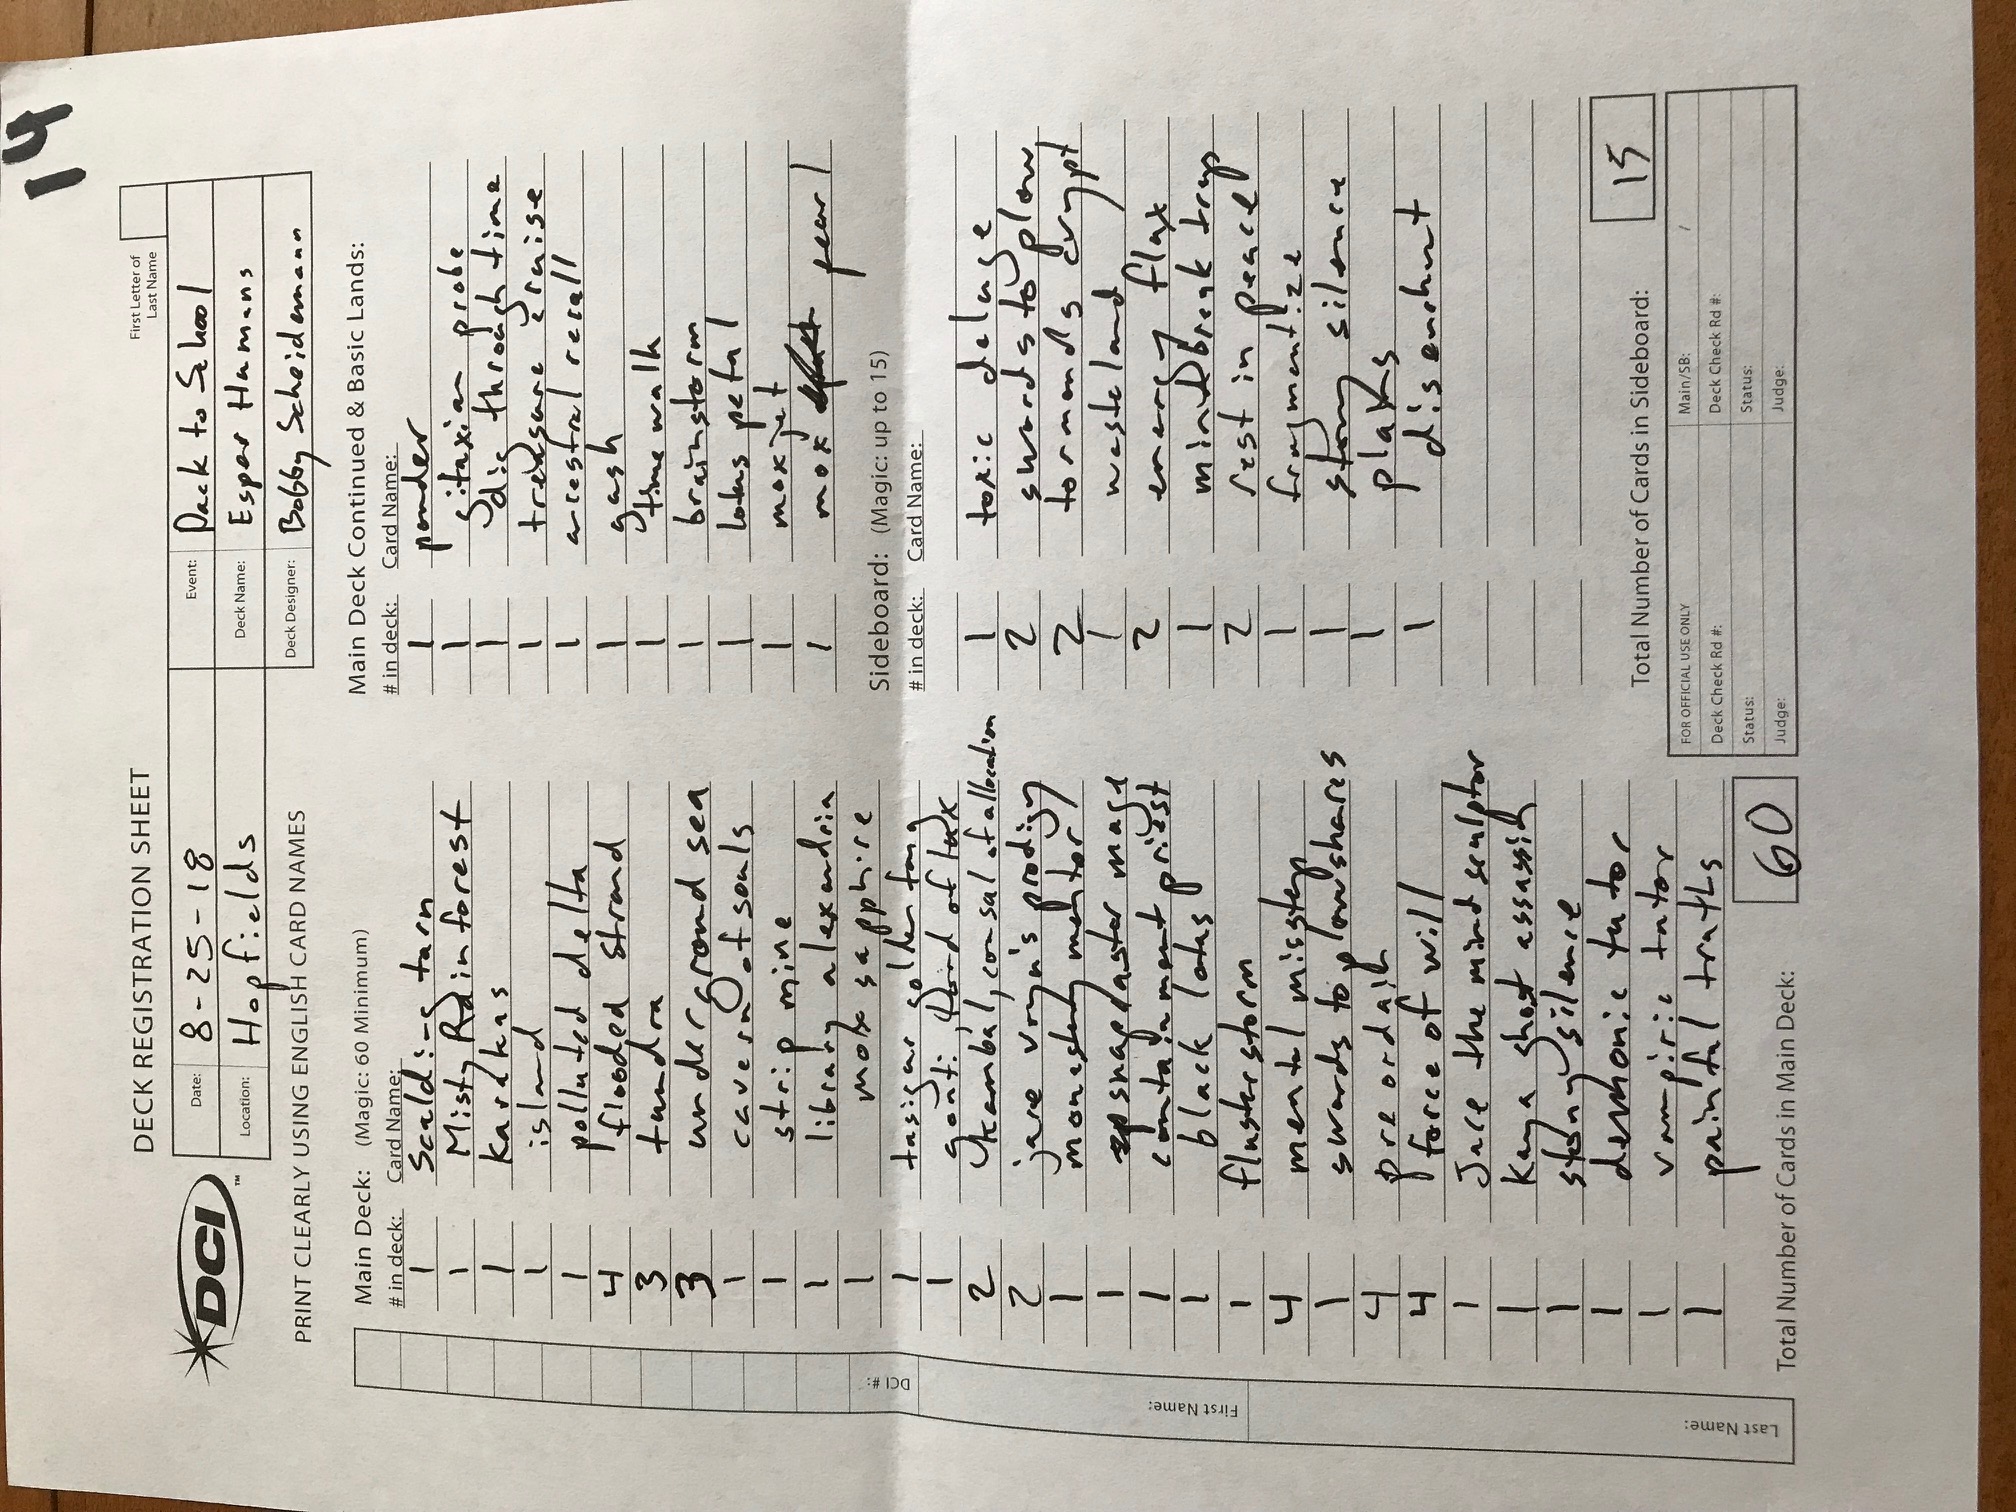 14
DECK REGISTRATION SHEET
First Letter of
Last Name
DCI
™
Date: 8-25-18
Event: Pack to School
Location: Hopfields
Deck Name: Esper Humans
Deck Designer: Bobby Scheidemann
PRINT CLEARLY USING ENGLISH CARD NAMES
Main Deck: (Magic: 60 Minimum)
# in deck: Card Name:
1 Scalding tarn
1 Misty Rainforest
1 Karakas
1 island
1 polluted delta
4 flooded strand
3 tundra
3 underground sea
1 cavern of souls
1 strip mine
1 library alexandria
1 mox sapphire
1 tasigur golden fang
1 gonti, lord of lux
2 kambal, consul of allocation
2 jace vryn's prodigy
1 monastery mentor
1 snapcaster mage
1 containment priest
1 black lotus
1 flusterstorm
4 mental misstep
1 swords to plowshares
4 preordain
4 force of will
1 Jace the mind sculptor
1 Kaya ghost assassin
1 stony silence
1 demonic tutor
1 vampiric tutor
1 painful truths
Total Number of Cards in Main Deck: 60
Main Deck Continued & Basic Lands:
# in deck: Card Name:
1 ponder
1 gitaxian probe
1 dig through time
1 treasure cruise
1 ancestral recall
1 gush
1 time walk
1 brainstorm
1 lotus petal
1 mox jet
1 mox pearl
Sideboard: (Magic: up to 15)
# in deck: Card Name:
1 toxic deluge
2 swords to plow
2 tormonds crypt
1 wasteland
2 energy flux
1 mindbreak trap
2 rest in peace
1 fragmentize
1 stony silence
1 plains
1 disenchant
Total Number of Cards in Sideboard: 15
FOR OFFICIAL USE ONLY
Main/SB: /
Deck Check Rd #:
Deck Check Rd #:
Status:
Status:
Judge:
Judge:
DCI #:
First Name:
Last Name: